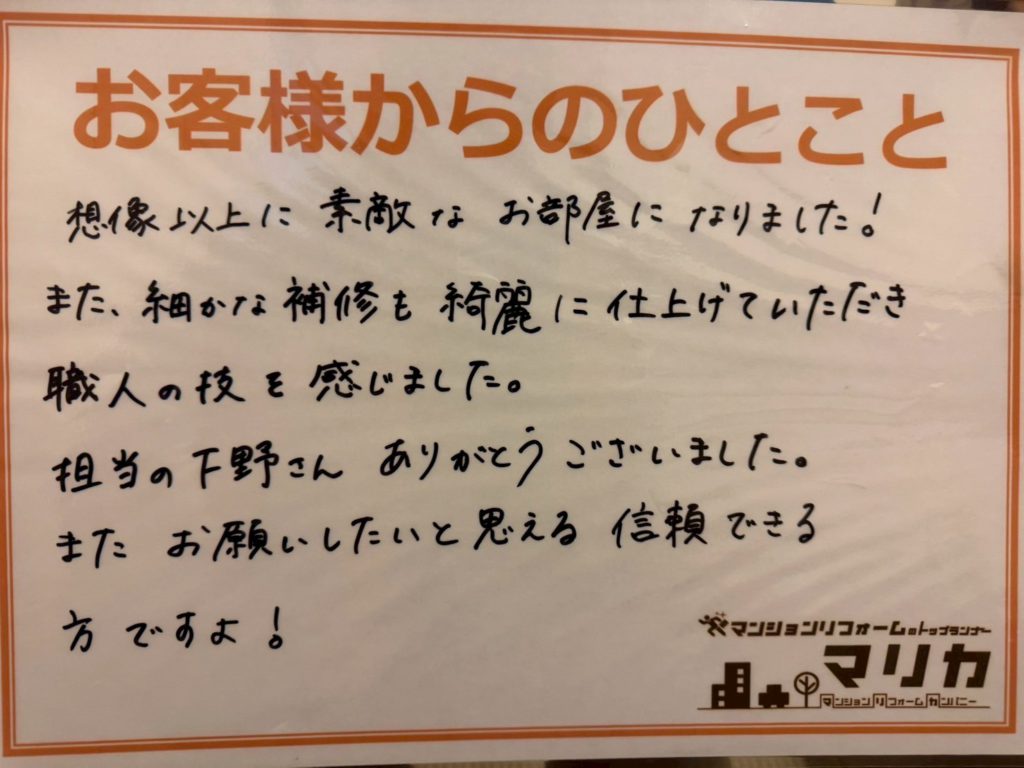 お客様からのひとこと
想像以上に 素敵な お部屋に なりました!
また、細かな補修も 綺麗に仕上げていただき
職人の技を感じました。
担当の下野さん ありがとうございました。
また お願いしたいと思える 信頼できる
方ですよ!
マンションリフォームのトップランナー
マリカ
マンションリフォームカンパニー